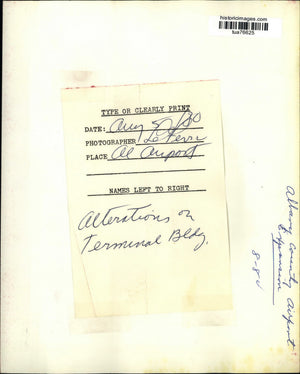 historicimages.com
tua76625
TYPE OR CLEARLY PRINT
DATE: Aug 5/80
PHOTOGRAPHER
PLACE Al Airport
NAMES LEFT TO RIGHT
Alterations on
Terminal Bldg.
Albany County Airport
Expansion
8-8-4